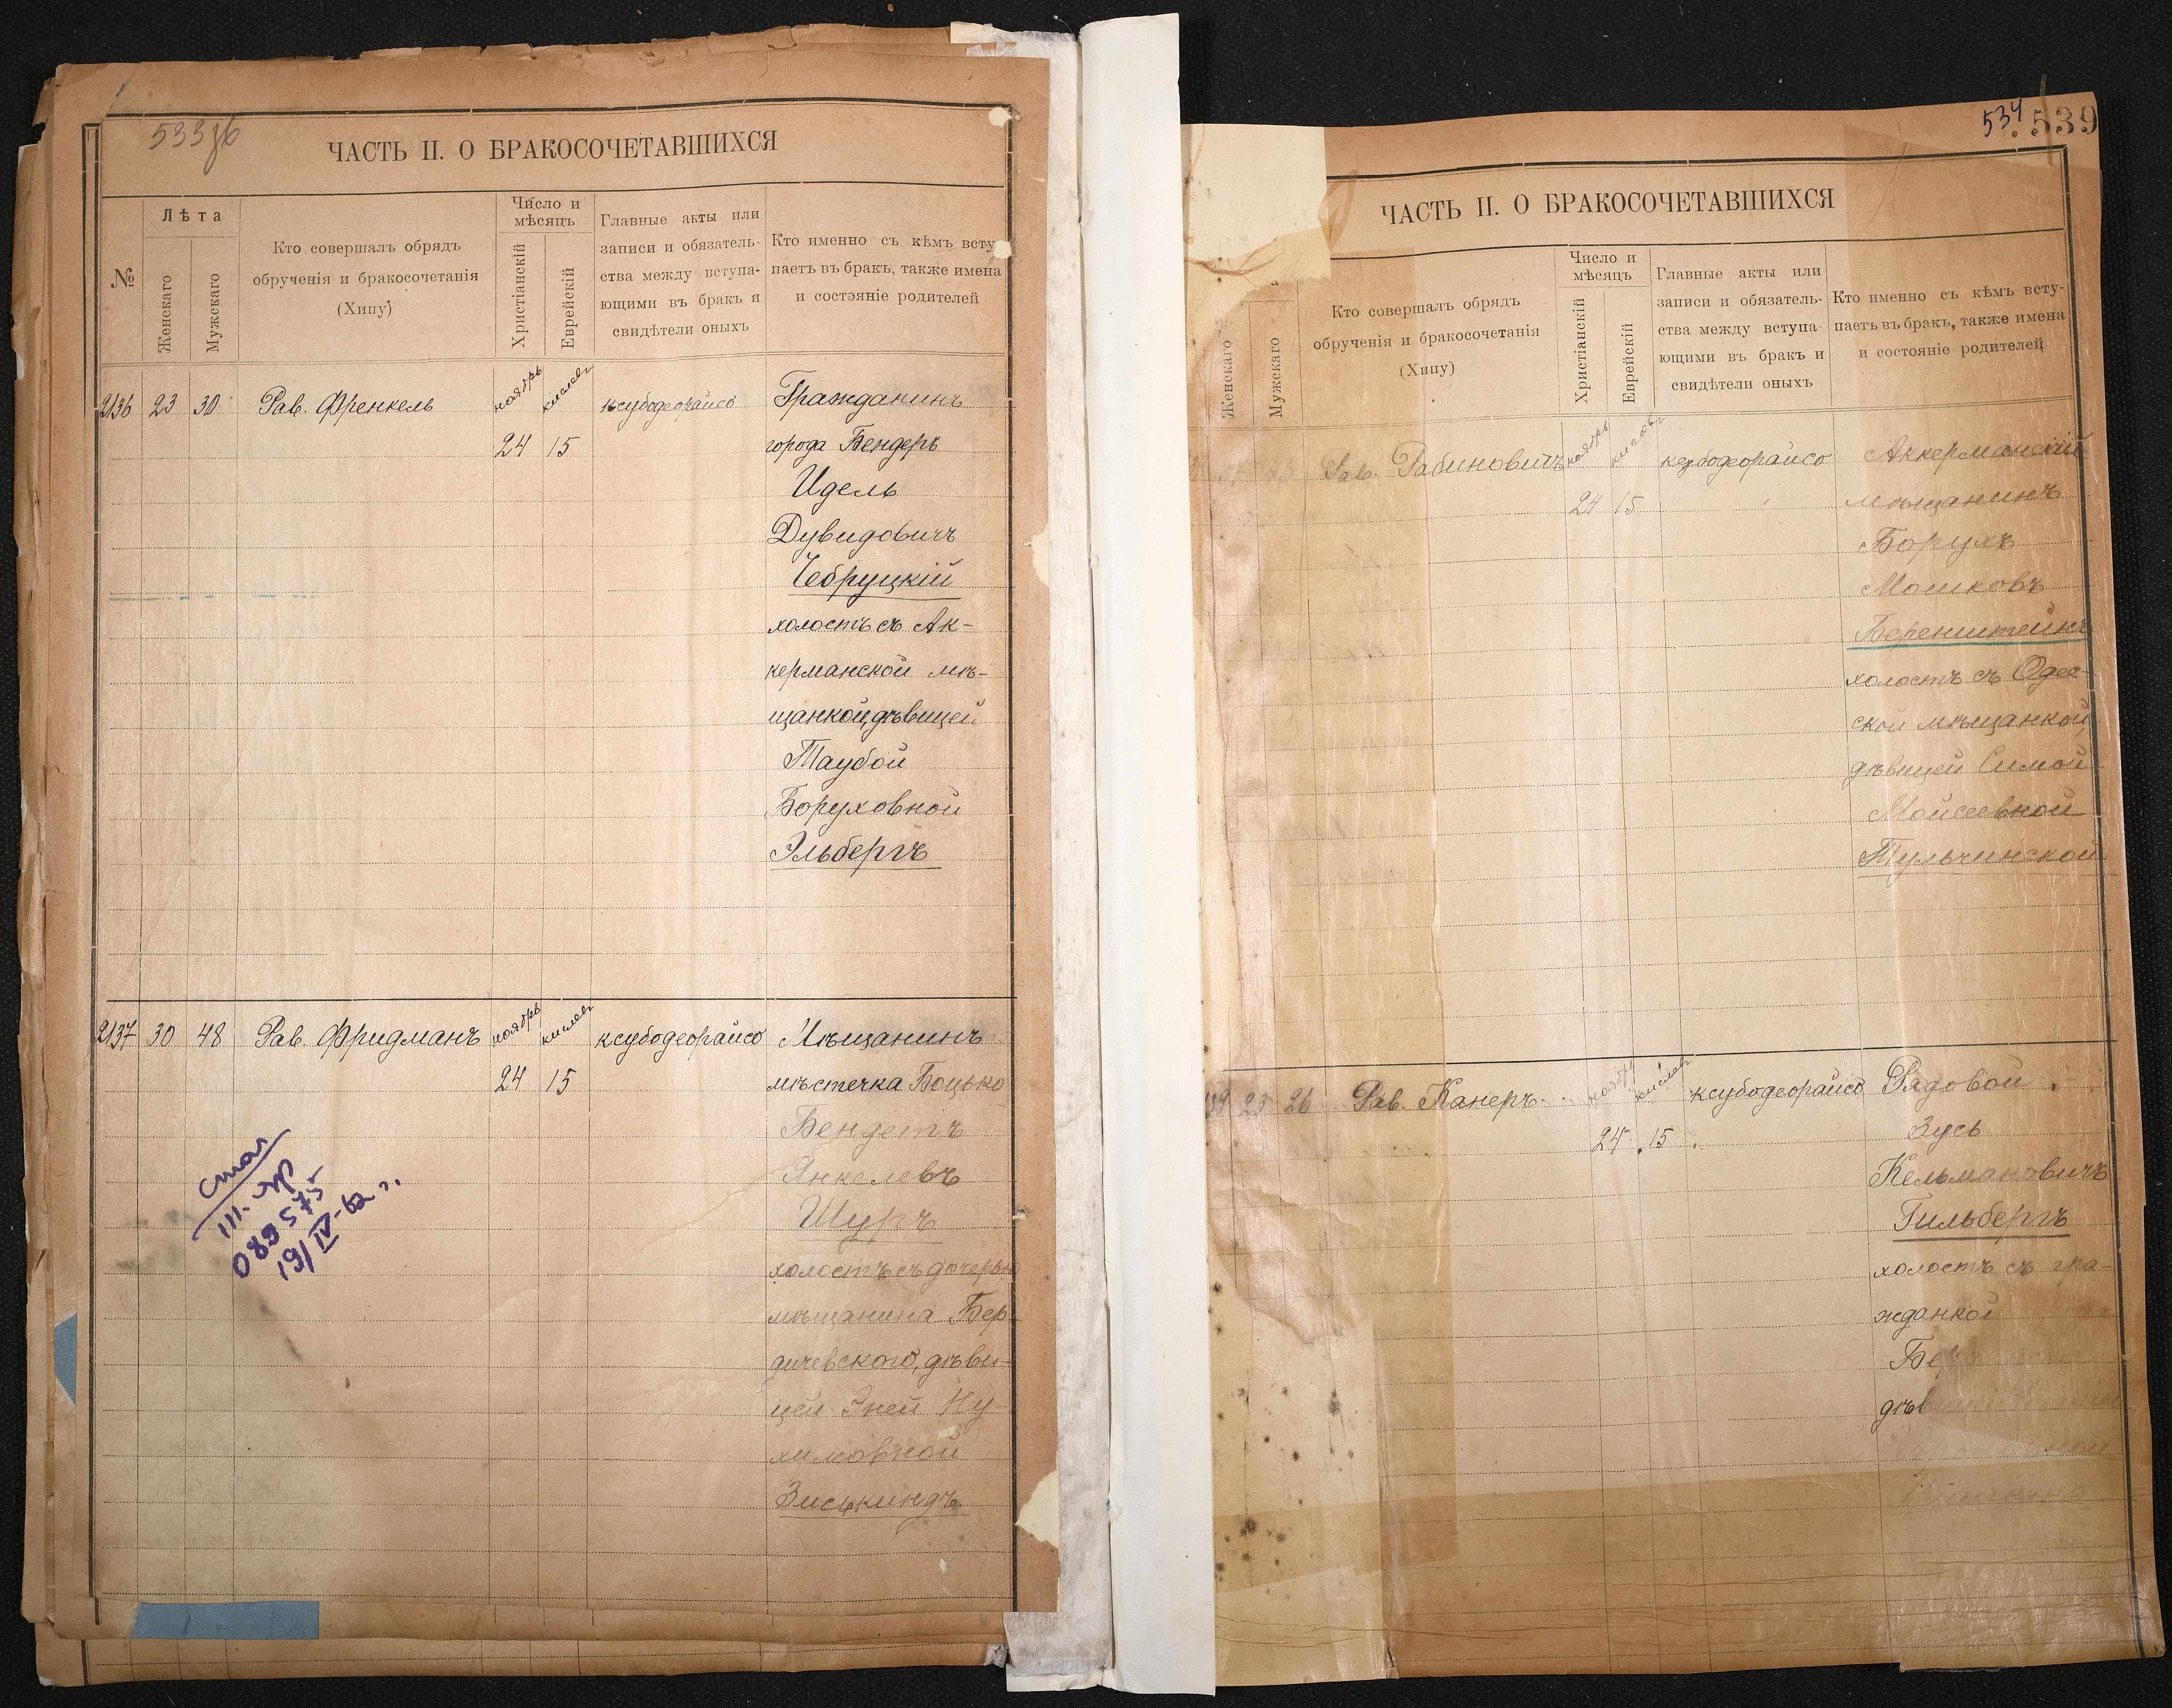 533об
ЧАСТЬ II. О БРАКОСОЧЕТАВШИХСЯ
№
Лѣта
Женскаго
Мужскаго
Кто совершалъ обрядъ
обрученія и бракосочетанія
(Хипу)
Число и
мѣсяцъ
Христіанскій
Еврейскій
Главные акты или
записи и обязатель-
ства между вступа-
ющими въ бракъ и
свидѣтели оныхъ
Кто именно съ кѣмъ всту
паетъ въ бракъ, также имена
и состояніе родителей
2136 23 30 Рав. Френкель ноябрь кислевъ ксубодеорайсо Гражданинъ
24 15 города Бендеръ
Идель
Дувидовичъ
Чебруцкій
холостъ съ Ак-
керманской мѣ-
щанкой, дѣвицей
Таубой
Боруховной
Эльбергъ
2137 30 48 Рав. Фридманъ ноябрь кислевъ ксубодеорайсо Мѣщанинъ
24 15 мѣстечка Боцько
Бендетъ
Янкелевъ
Шуръ
холостъ съ дочерью
мѣщанина Бер-
дичевского, дѣви-
цей Эней Ну-
химовной
Зиськиндъ
III-
089575
19/IV-62 г.
534 539
ЧАСТЬ II. О БРАКОСОЧЕТАВШИХСЯ
Женскаго
Мужскаго
Кто совершалъ обрядъ
обрученія и бракосочетанія
(Хипу)
Число и
мѣсяцъ
Христіанскій
Еврейскій
Главные акты или
записи и обязатель-
ства между вступа-
ющими въ бракъ и
свидѣтели оныхъ
Кто именно съ кѣмъ всту-
паетъ въ бракъ, также имена
и состояніе родителей
Рав. Рабиновичъ ноябрь кислевъ ксубодеорайсо Аккерманскій
24 15 мѣщанинъ
Борухъ
Мошковъ
Беренштейнъ
холостъ съ Одес-
ской мѣщанкой,
дѣвицей Симой
Мойсеевной
Тульчинской
139 23 26 Рав. Канеръ ноябрь кислевъ ксубодеорайсо Рядовой
24 15 Зусь
Кельмановичъ
Гильбергъ
холостъ съ гра-
жданкой